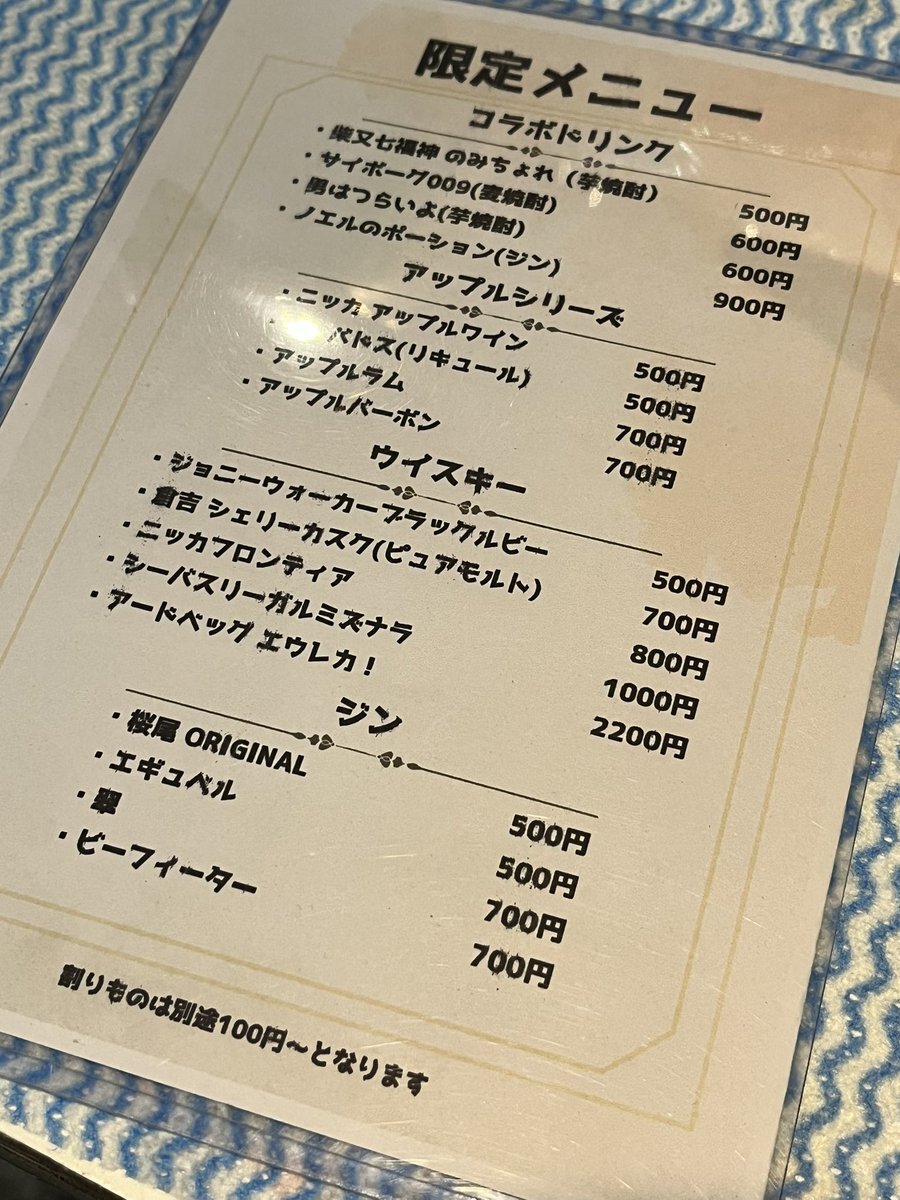 限定メニュー
コラボドリンク
・柴又七福神 のみちょれ (芋焼酎) 500円
・サイボーグ009(麦焼酎) 600円
・男はつらいよ(芋焼酎) 600円
・ノエルのポーション(ジン) 900円
アップルシリーズ
・ニッカ アップルワイン 500円
バドス(リキュール) 500円
・アップルラム 700円
・アップルバーボン 700円
ウイスキー
・ジョニーウォーカーブラックルビー 500円
・倉吉 シェリーカスク(ピュアモルト) 700円
・ニッカフロンティア 800円
・シーバスリーガルミズナラ 1000円
・アードベッグ エウレカ! 2200円
ジン
・桜尾 ORIGINAL 500円
・エギュベル 500円
・翠 700円
・ビーフィーター 700円
割りものは別途100円〜となります